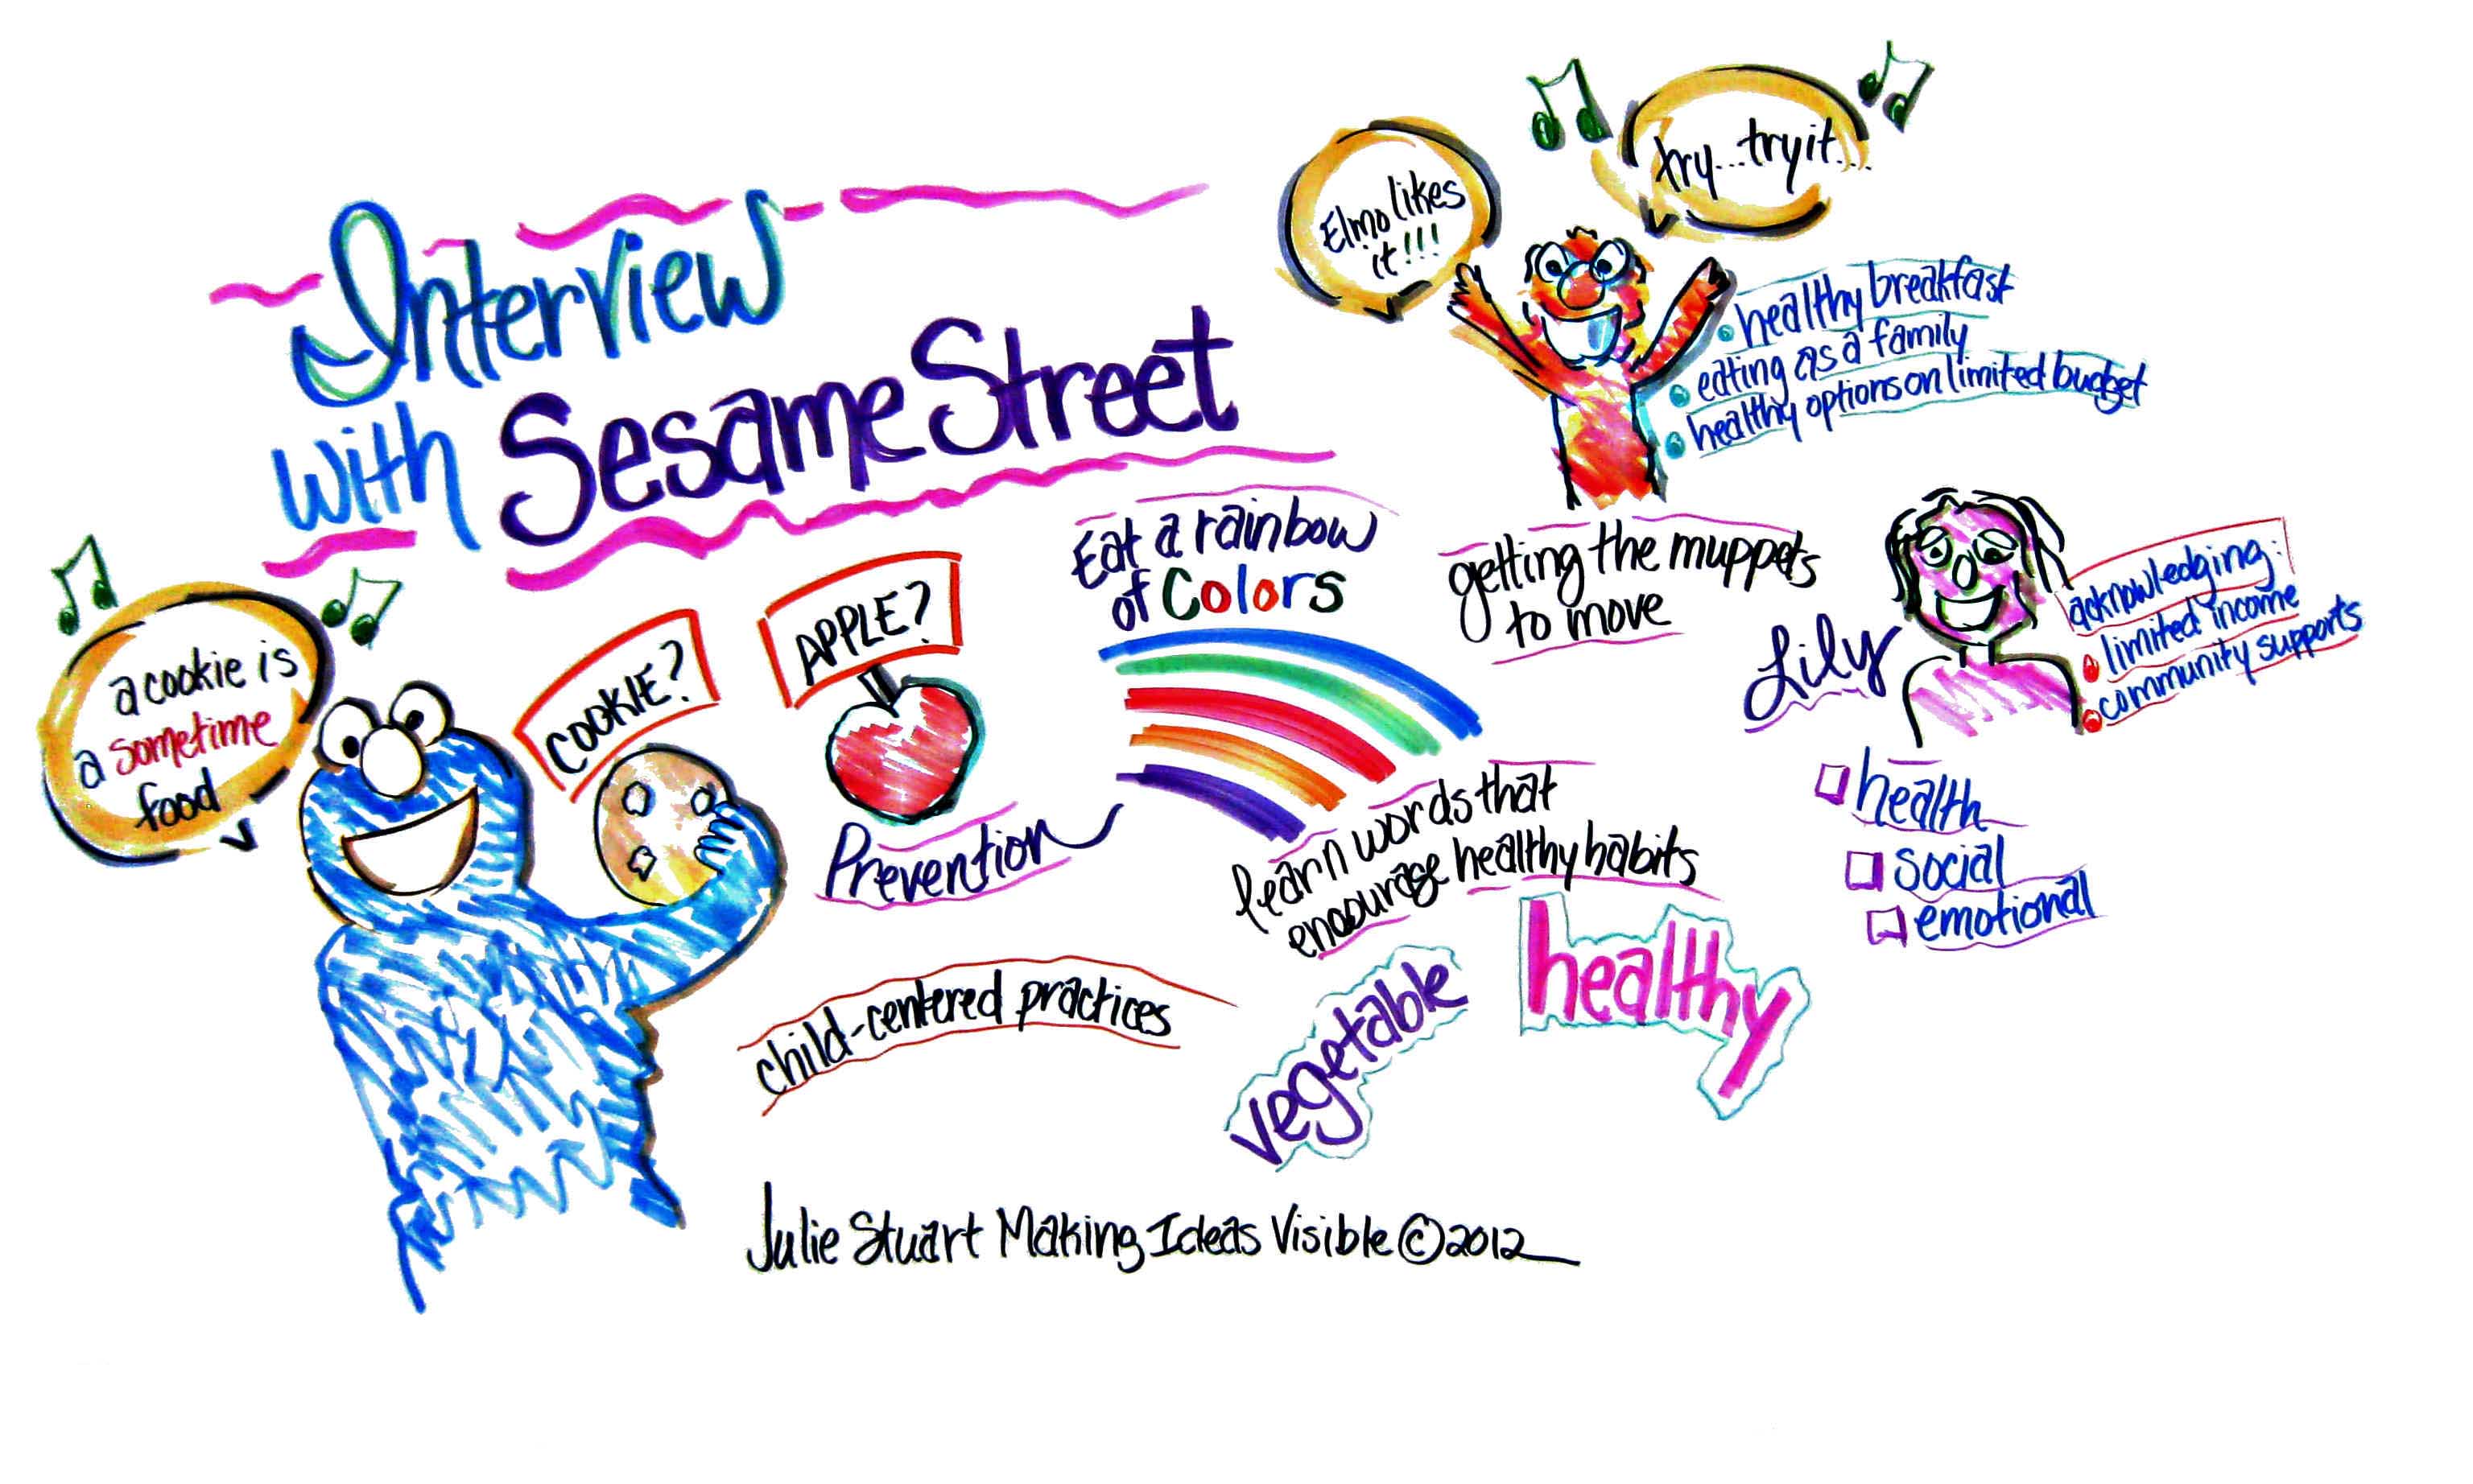 Interview
with Sesame Street
Elmo likes
it!!!
try...try it....
• healthy breakfast
• eating as a family
• healthy options on limited budget
a cookie is
a sometime
food
COOKIE?
APPLE?
Prevention
Eat a rainbow
of Colors
getting the muppets
to move
Lily
acknowledging:
• limited income
• community supports
health
social
emotional
learn words that
encourage healthy habits
vegetable
healthy
child-centered practices
Julie Stuart Making Ideas Visible © 2012